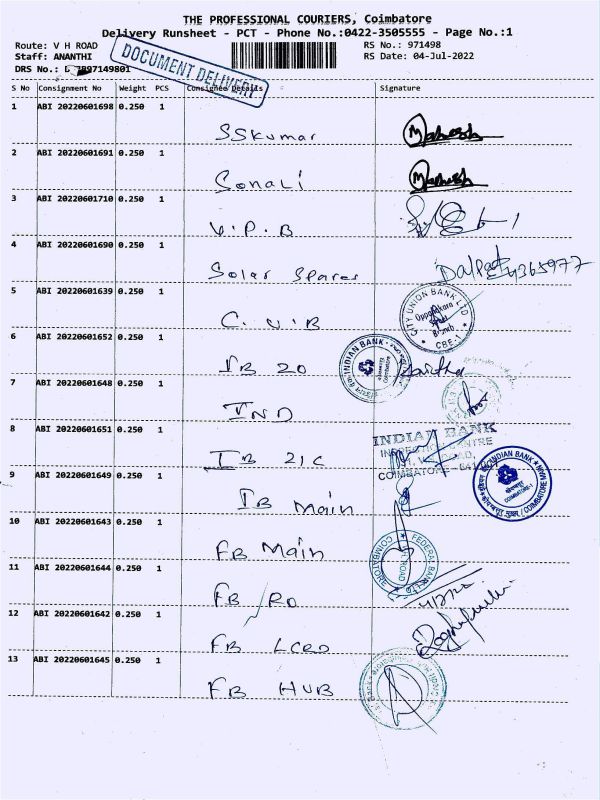 THE PROFESSIONAL COURIERS, Coimbatore
Delivery Runsheet - PCT - Phone No.:0422-3505555 - Page No.:1
Route: V H ROAD
RS No.: 971498
Staff: ANANTHI
RS Date: 04-Jul-2022
DRS No.:
DOCUMENT DELIVERY
S No Consignment No Weight PCS Consignee Details Signature
1 ABI 20220601698 0.250 1 SSKumar
2 ABI 20220601691 0.250 1 Sonali
3 ABI 20220601710 0.250 1 V.P.B
4 ABI 20220601690 0.250 1 Solar Spares
5 ABI 20220601639 0.250 1 C.U.B
CITY UNION BANK LTD
CBE-1
6 ABI 20220601652 0.250 1 IB 20
INDIAN BANK
7 ABI 20220601648 0.250 1 IND
8 ABI 20220601651 0.250 1 IB 21C
INDIAN BANK
COIMBATORE
9 ABI 20220601649 0.250 1 IB Main
INDIAN BANK
10 ABI 20220601643 0.250 1 FB Main
FEDERAL BANK LTD
COIMBATORE
11 ABI 20220601644 0.250 1 FB RO
12 ABI 20220601642 0.250 1 FB LCRD
13 ABI 20220601645 0.250 1 FB HUB